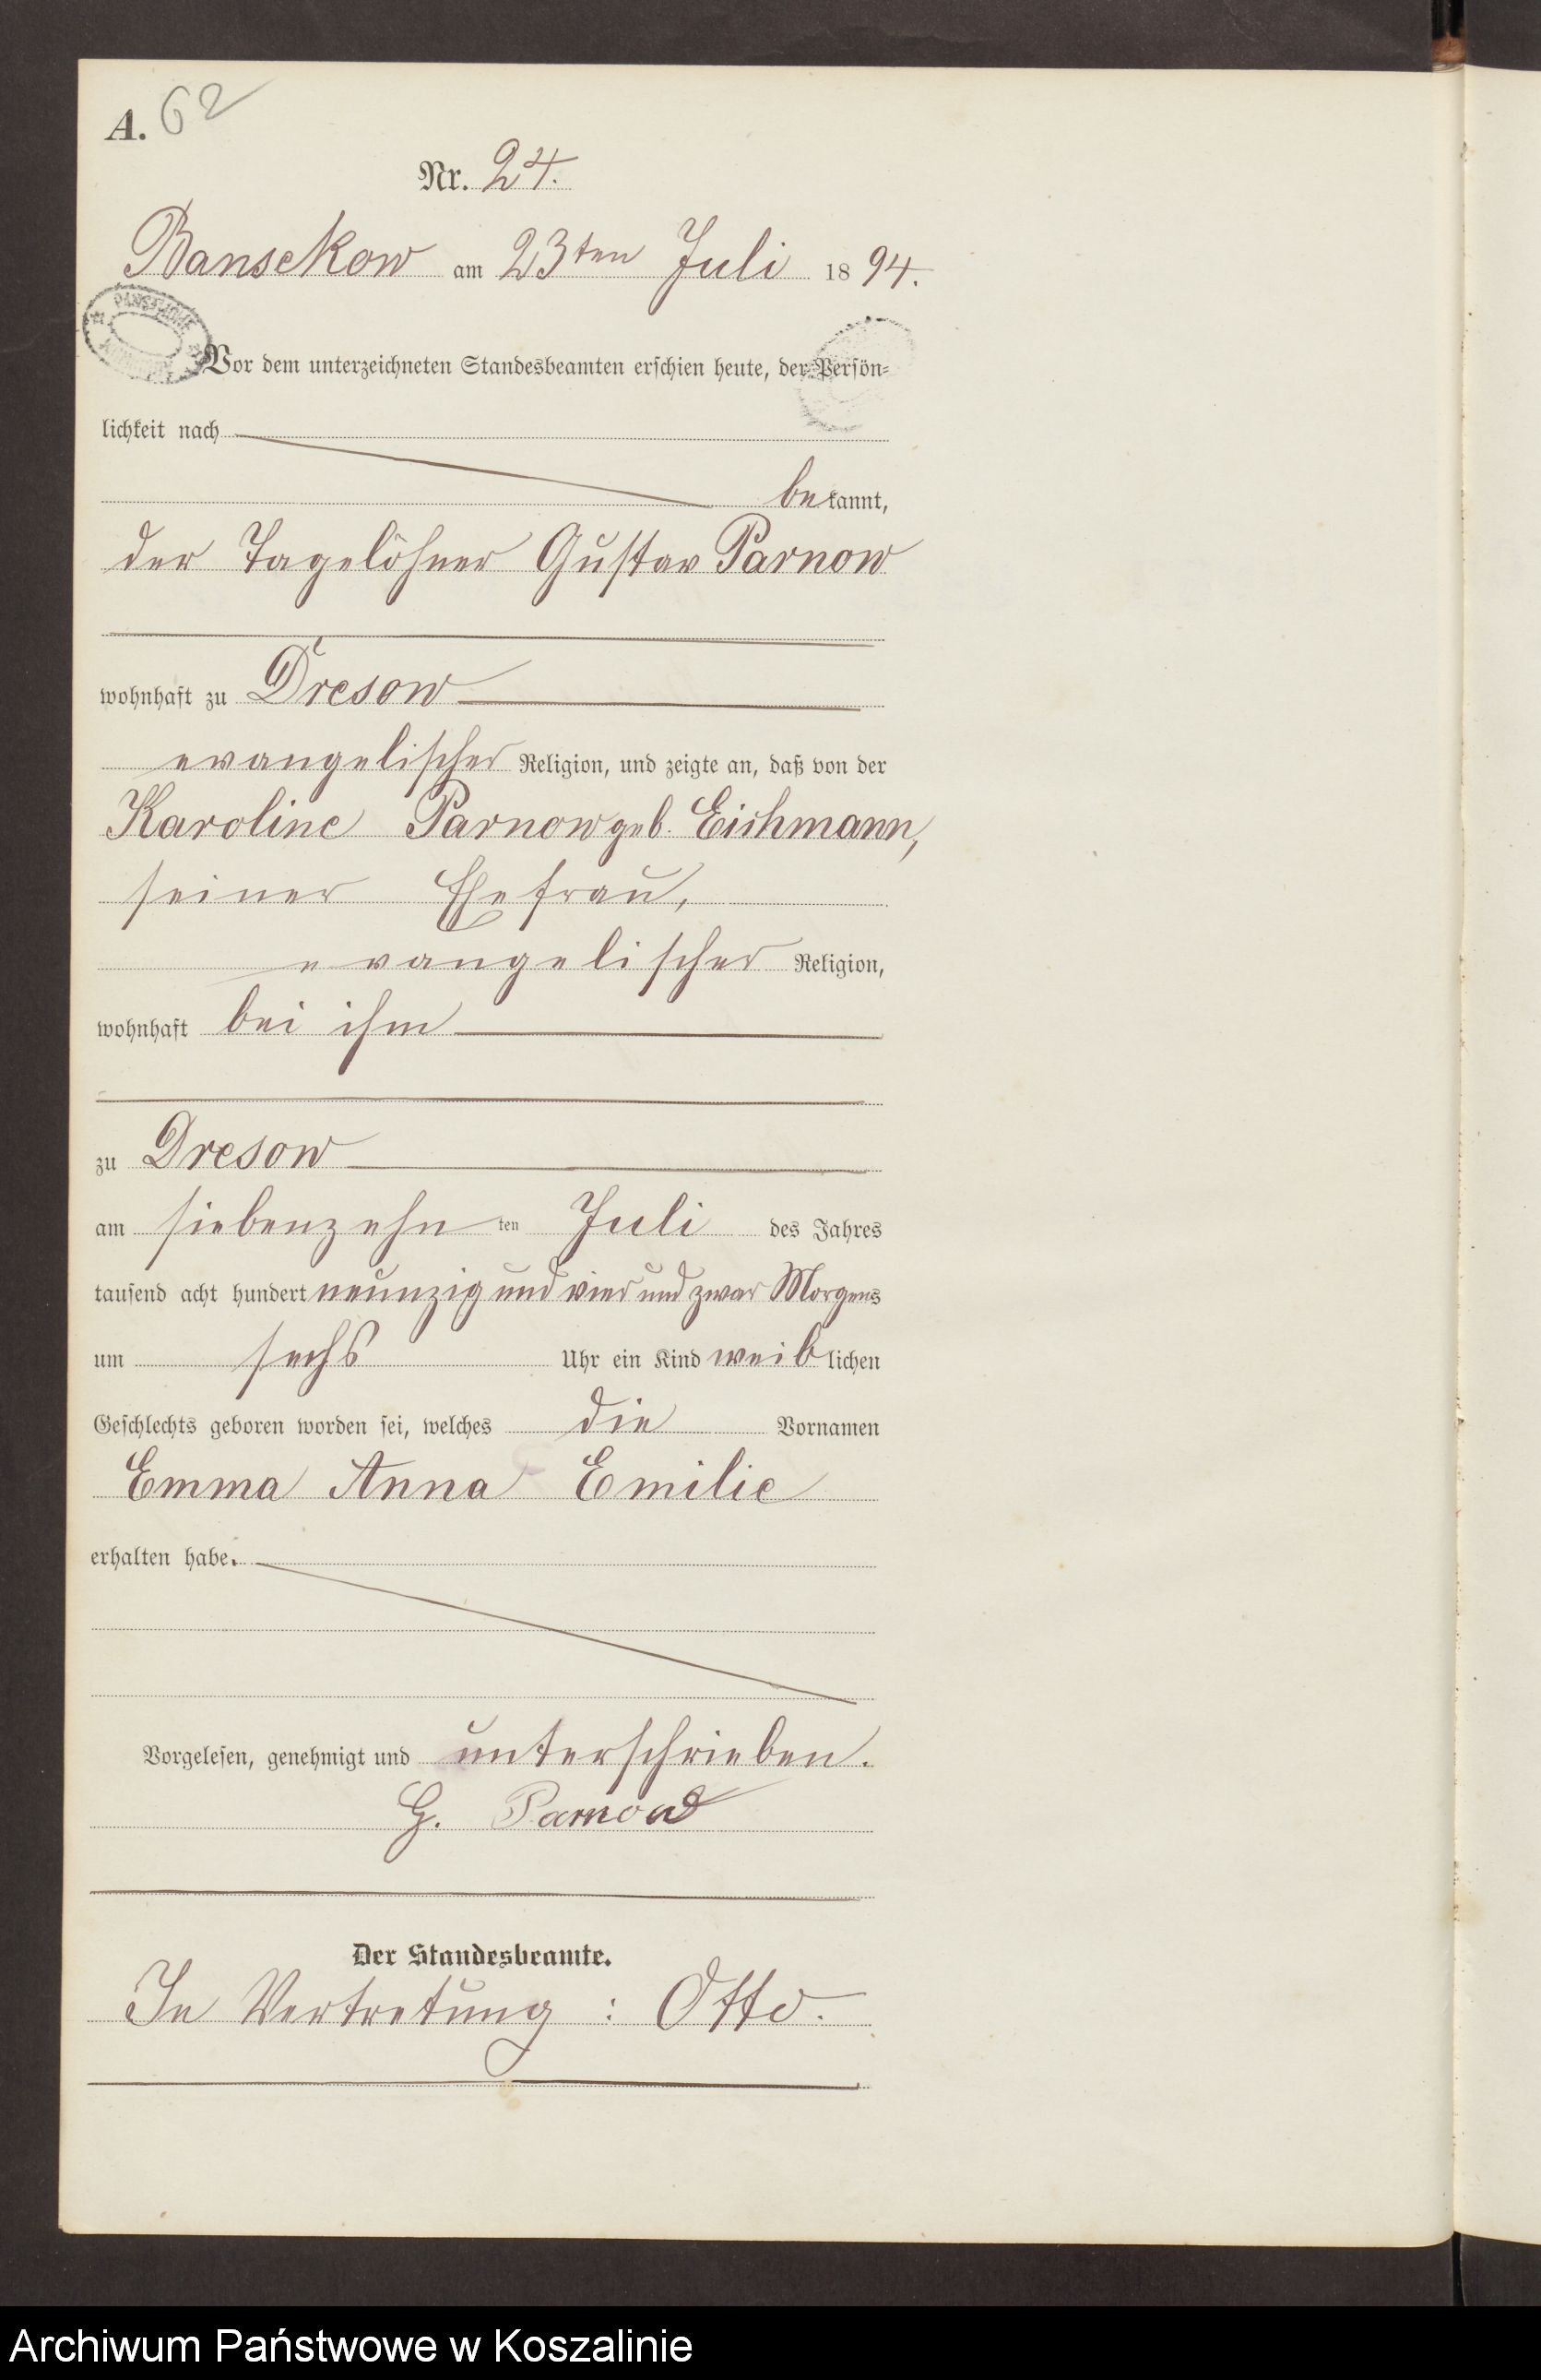 A. 62
Nr. 24.
Bansekow am 23ten Juli 1894.
Vor dem unterzeichneten Standesbeamten erschien heute, der Persön-
lichkeit nach
bekannt,
der Tagelöhner Gustav Parnow
wohnhaft zu Dresow
evangelischer Religion, und zeigte an, daß von der
Karoline Parnow geb. Eichmann,
seiner Ehefrau,
evangelischer Religion,
wohnhaft bei ihm
zu Dresow
am siebenzehn ten Juli des Jahres
tausend acht hundert neunzig und vier und zwar Morgens
um sechs Uhr ein Kind weiblichen
Geschlechts geboren worden sei, welches die Vornamen
Emma Anna Emilie
erhalten habe.
Vorgelesen, genehmigt und unterschrieben.
G. Parnow
Der Standesbeamte.
In Vertretung : Otto.
Archiwum Państwowe w Koszalinie